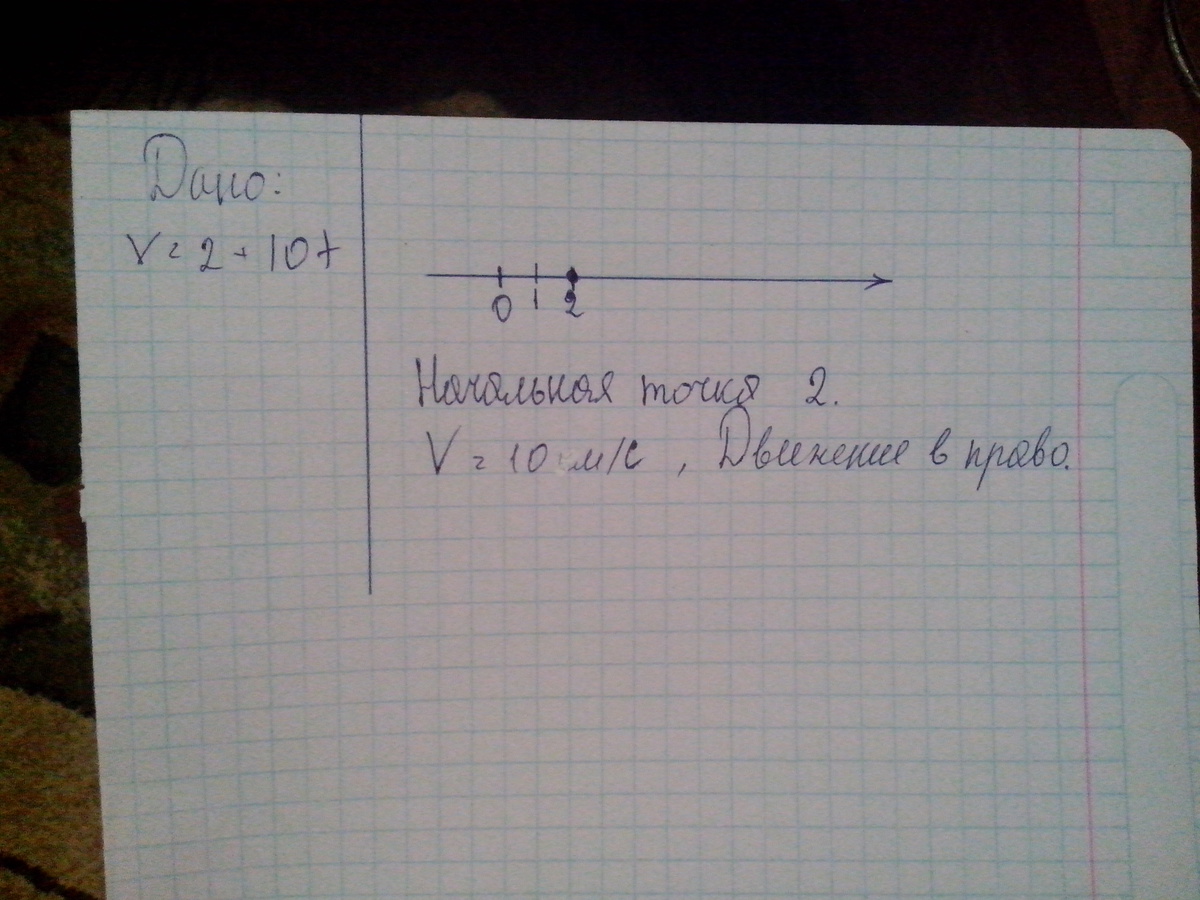 Дано:
V = 2 + 10t
0 1 2
Начальная точка 2.
V = 10 м/с, Движение в право.